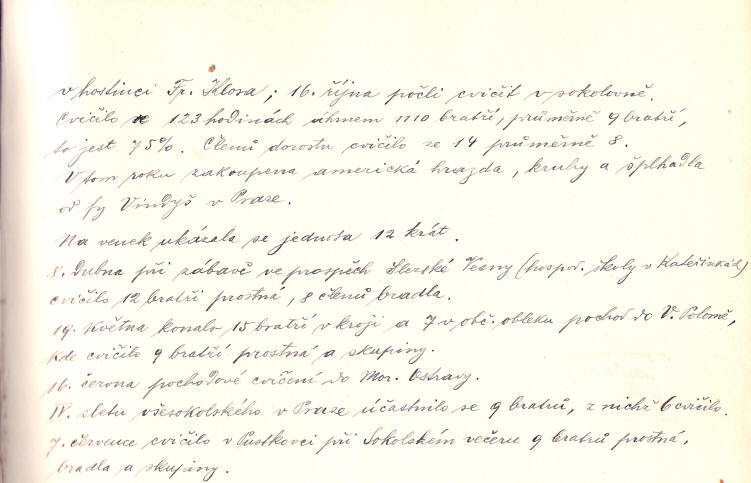 v hostinci Fr. Klosa; 16. října počli cvičit v sokolovně.
Cvičilo v 123 hodinách úhrnem 1110 bratří, průměrně 9 bratří,
to jest 75%. Členů dorostu cvičilo ze 14 průměrně 8.
V tom roku zakoupena americká hrazda, kruhy a šplhadla
od fy Vindyš v Praze.
Na venek ukázala se jednota 12 krát.
8. dubna při zábavě ve prospěch Slezské Vesny (hospod. školy v Kateřinkách)
cvičilo 12 bratří prostná, 8 členů bradla.
19. Května konalo 15 bratří v kroji a 7 v obč. obleku pochod do V. Polomě,
kde cvičilo 9 bratří prostná a skupiny.
16. června pochodové cvičení do Mor. Ostravy.
IV. sletu všesokolského v Praze účastnilo se 9 bratrů, z nichž 6 cvičilo.
7. července cvičilo v Pustkovci při Sokolském večeru 9 bratrů prostná,
bradla a skupiny.